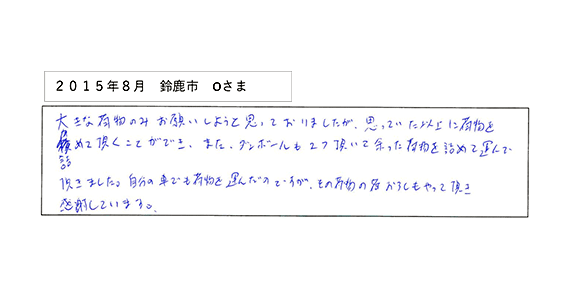 2015年8月　鈴鹿市　Oさま
大きな荷物のみお願いしようと思っておりましたが、思っていた以上に荷物を
詰めて頂くことができ、また、ダンボールも2つ頂いて余った荷物を詰めて運んで
頂きました。自分の車でも荷物を運んだのですが、その荷物の荷おろしもやって頂き
感謝しています。